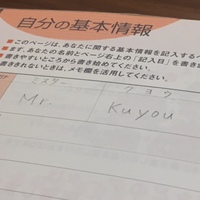 自分の基本情報
■このページは、あなたに関する基本情報を記入するペ
■まず、あなたの名前とページ右上の「記入日」を書き
■書きやすいところから書き始めてください。
書ききれないときは、メモ欄を活用してください。
ミスター クヨウ
Mr. Kuyou